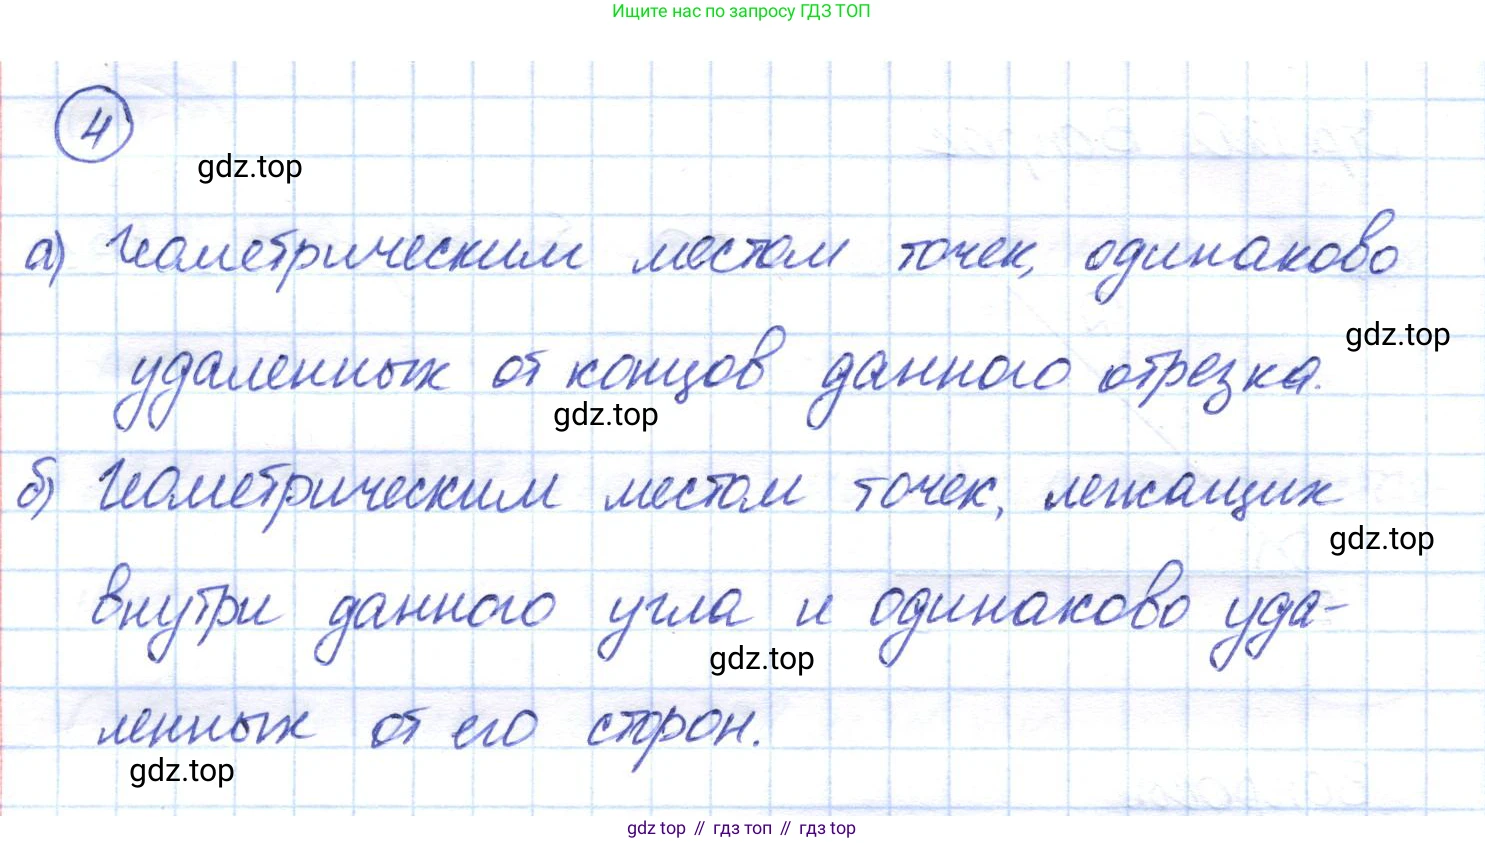 Ищите нас по запросу ГДЗ ТОП
4
gdz.top
а) Геометрическим местом точек, одинаково
gdz.top
удаленных от концов данного отрезка.
gdz.top
б) Геометрическим местом точек, лежащих
gdz.top
внутри данного угла и одинаково уда-
gdz.top
ленных от его сторон.
gdz.top
gdz top // гдз топ // гдз top